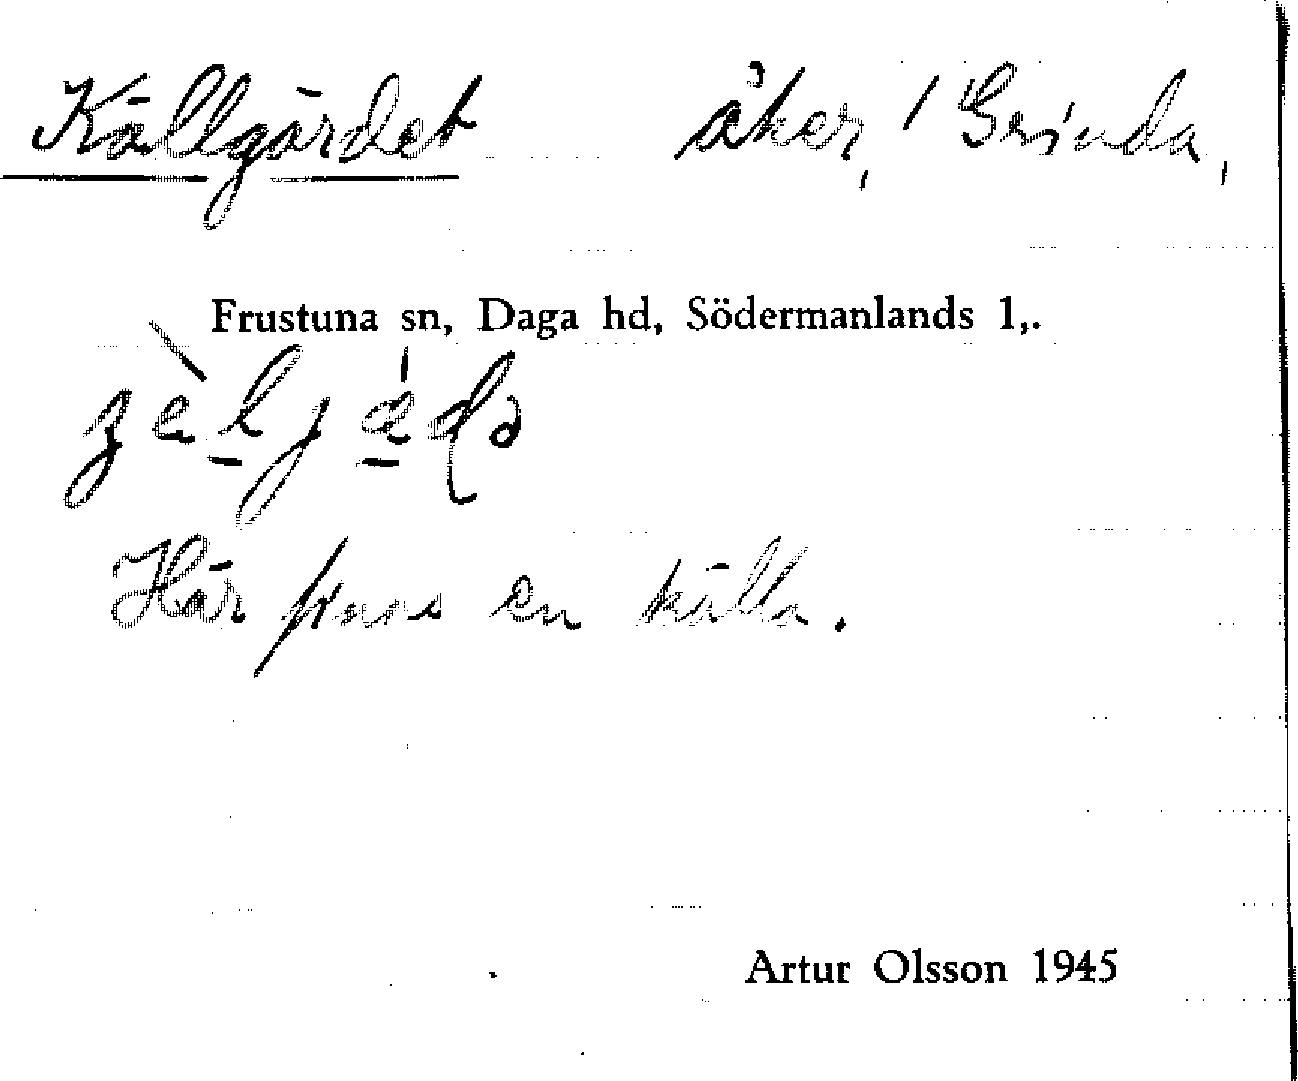 Källgärdet åker, / Grinda,
Frustuna sn, Daga hd, Södermanlands l,.
Här finns en källa.
Artur Olsson 1945